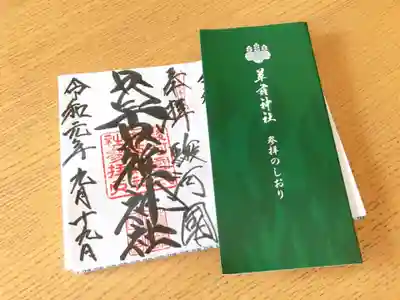 草薙神社
参拝のしおり
奉拝 駿河國
草薙神社
令和元年 九月十九日